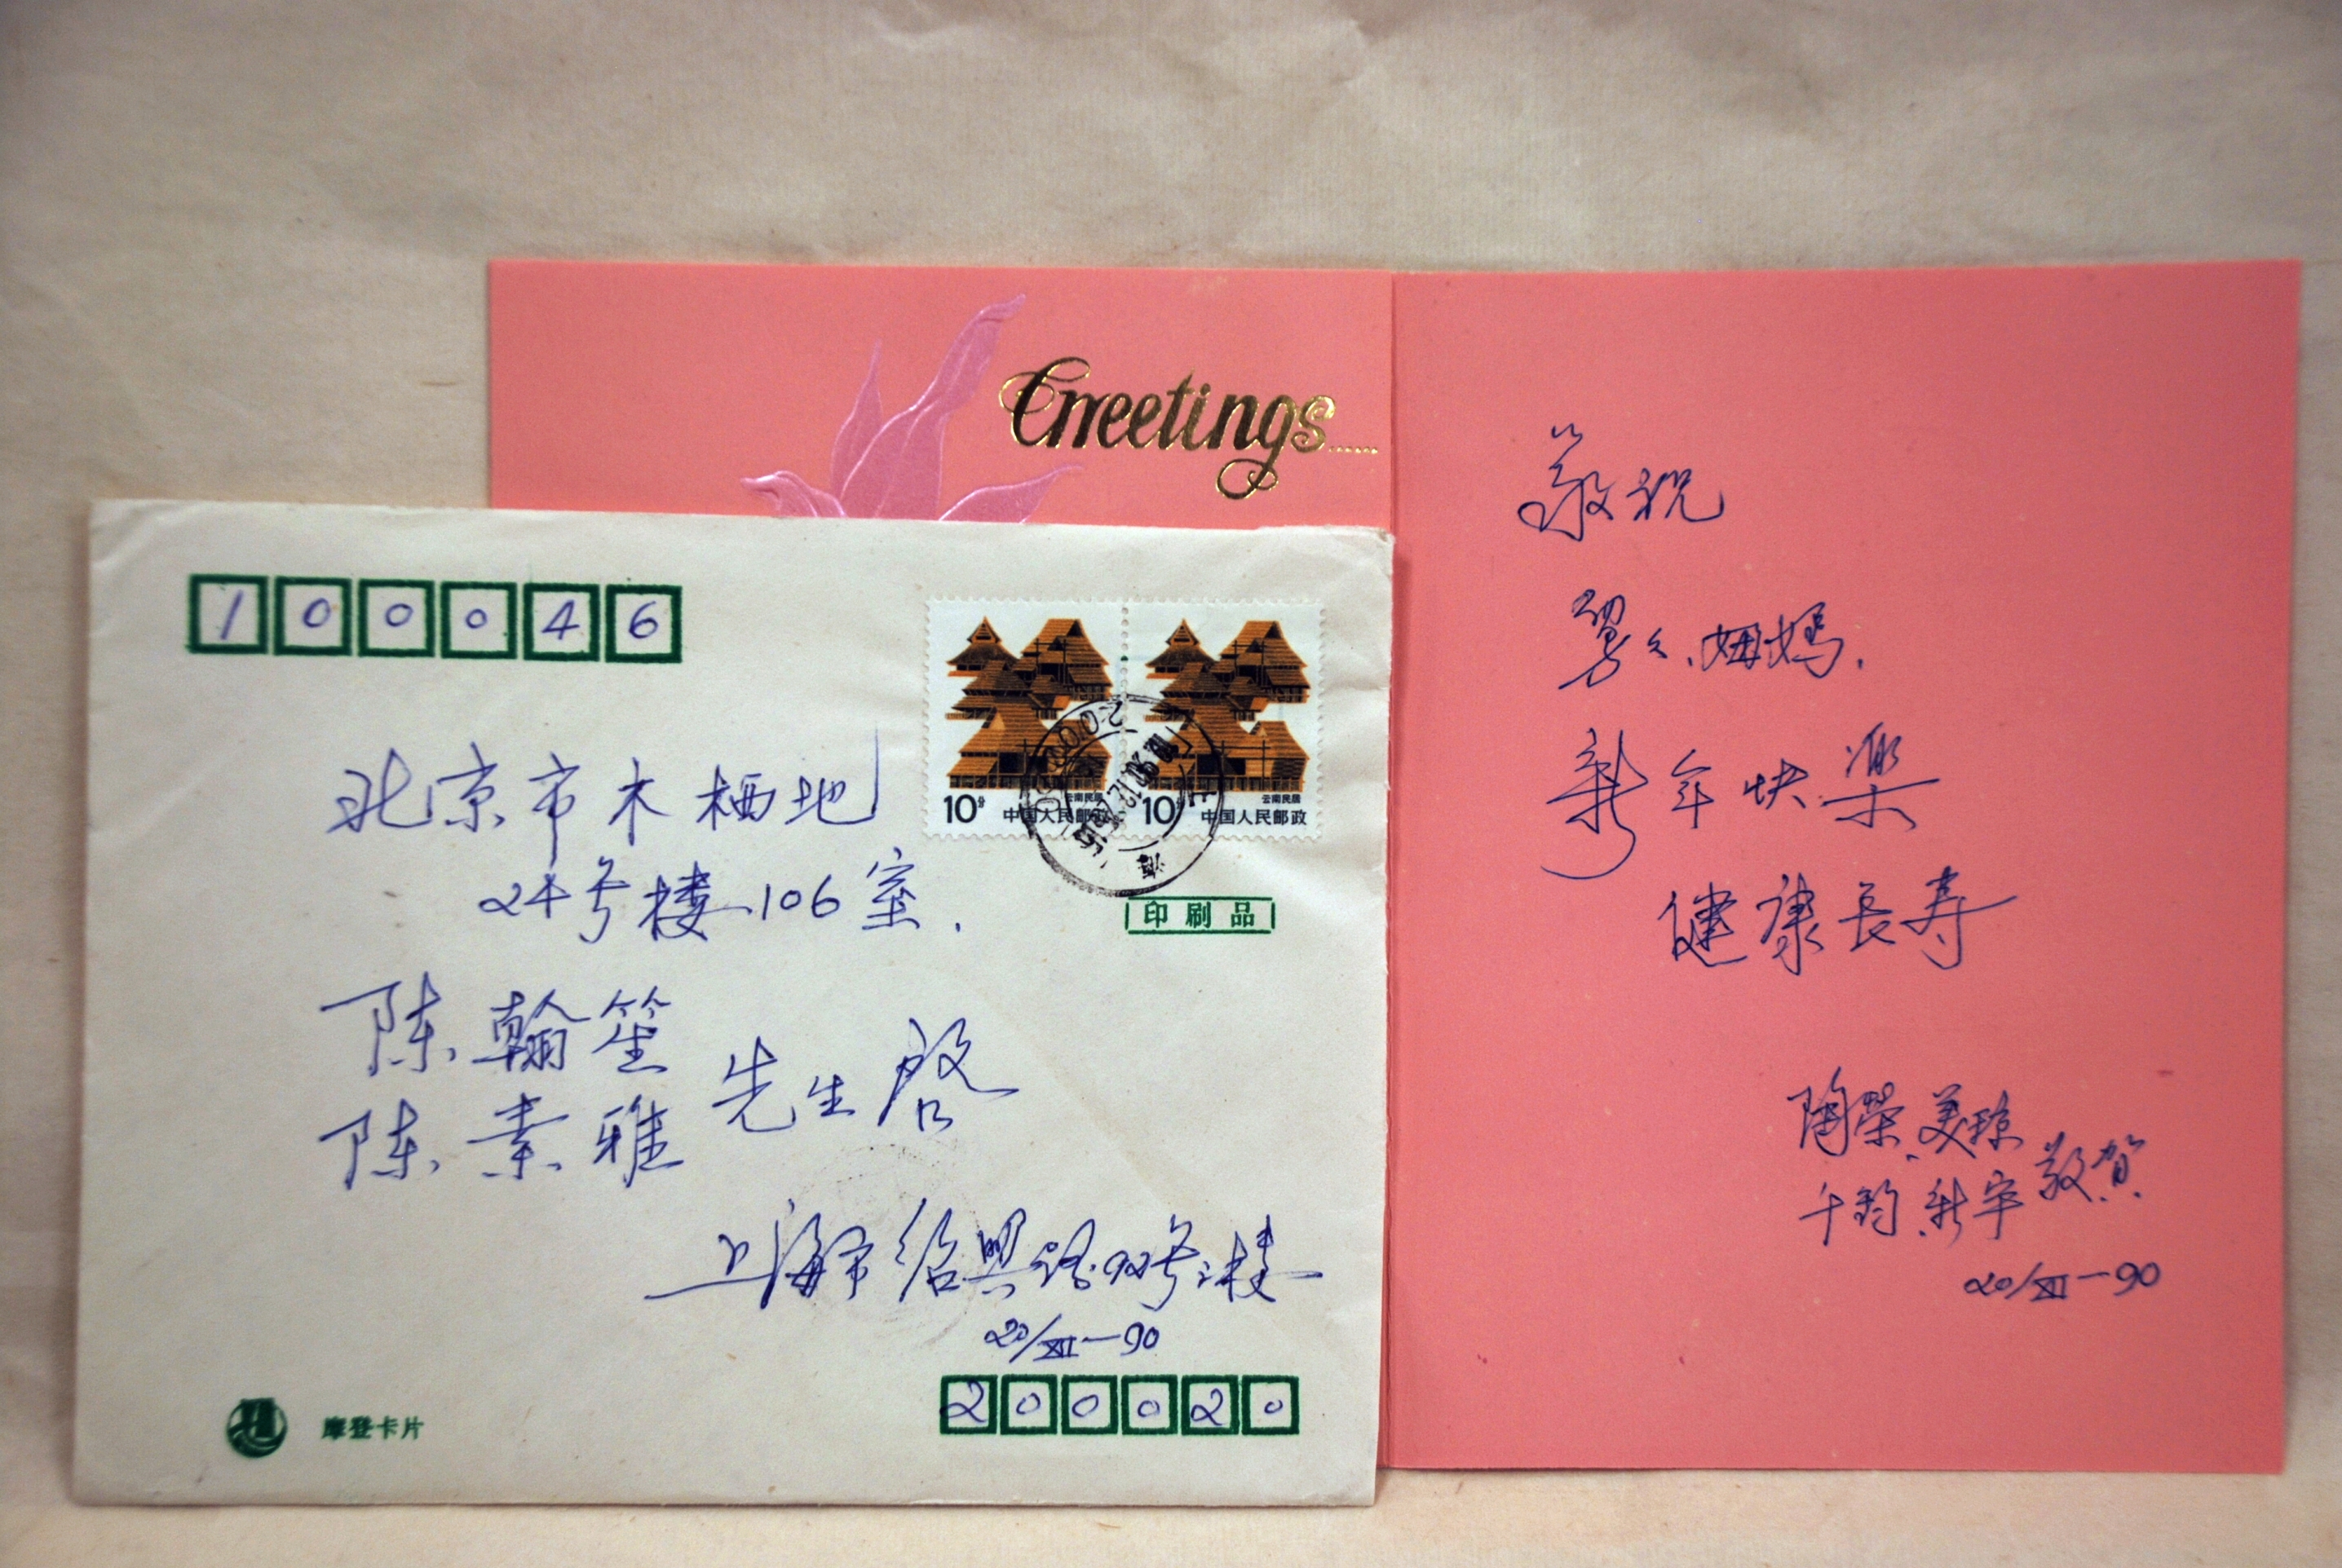 Greetings......
100046
云南民居
10分 中国人民邮政
云南民居
10分 中国人民邮政
印刷品
北京市木栖地
24号楼106室.
陈翰笙
陈素雅
先生启
上海市绍兴路92号
20/XII-90
200020
摩登卡片
敬祝
舅舅、姆妈.
新年快樂
健康長寿
陶荣、美琼
千钧、新宇 敬贺
20/XII-90